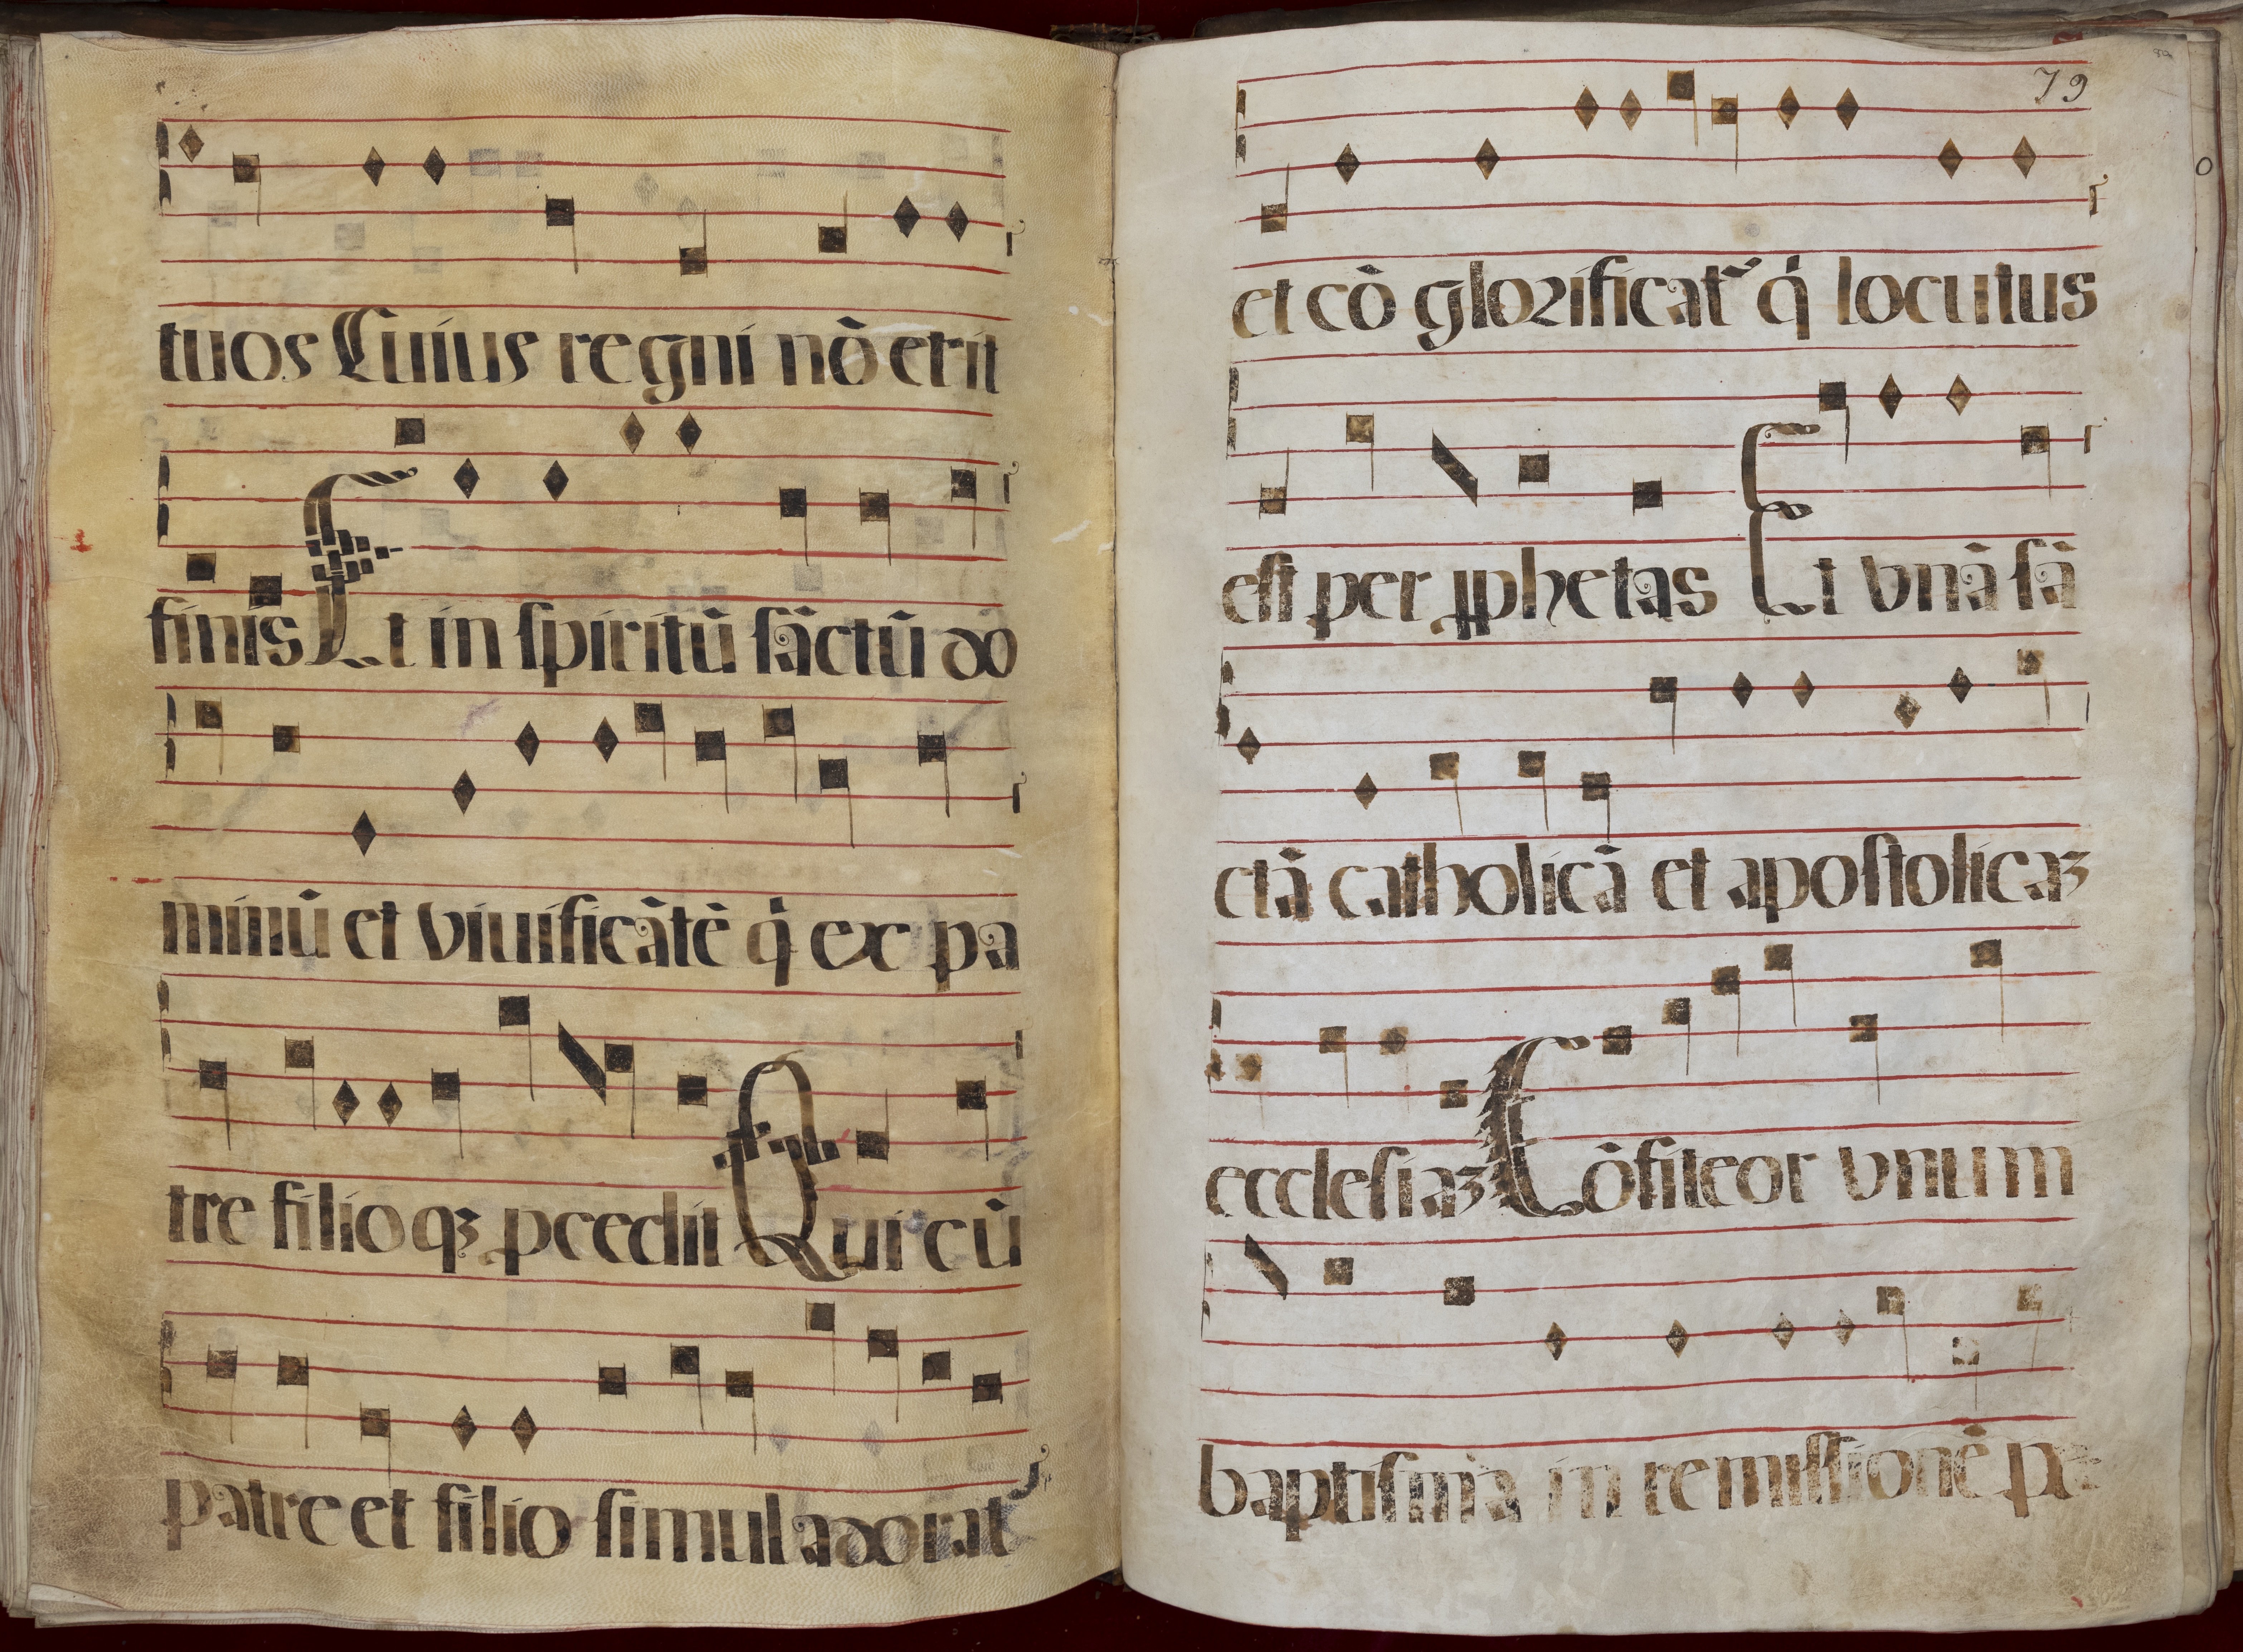 tuos Cuius regni nō erit
finis Et in ſpiritū ſāctū do
minū et viuificātē q̇ ex pa
tre filioqꝫ ꝓcedit Qui cū
patre et filio ſimul adorat᷑
79
et cō glorificat᷑ q̇ locutus
eſt per ꝓphetas Et vnā ſā
ctā catholicā et apoſtolicaꝫ
eccleſiaꝫ Cōfiteor vnum
baptiſma in remiſſionē